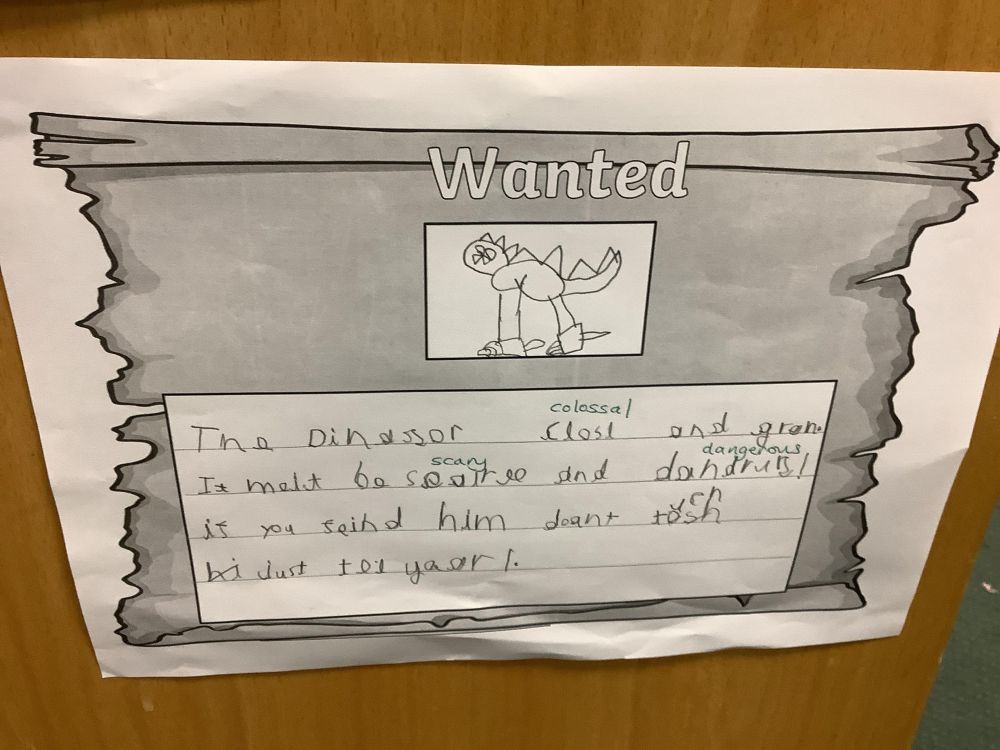 Wanted
colossal
The Dinassor Clost and gren.
scary dangerous
It melt be scatree and dandrus!
ch
is you feind him doant tosh
bi Just tel yaor 1.